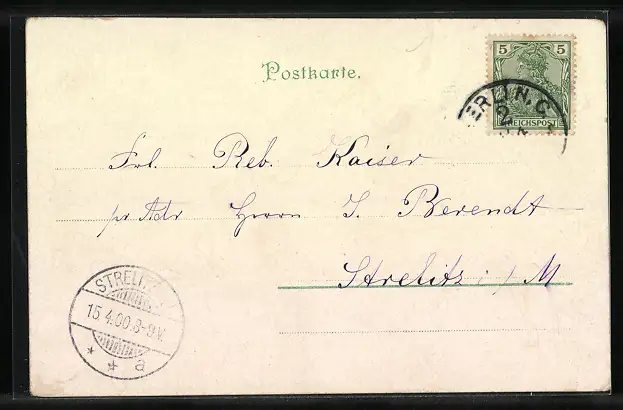 Postkarte.
5 5
REICHSPOST
ERLIN, C
Frl. Reb. Kaiser
pr Adr Herrn J. Berendt
Strelitz i/M
STRELI
15.4.00.8-9V.
* * a